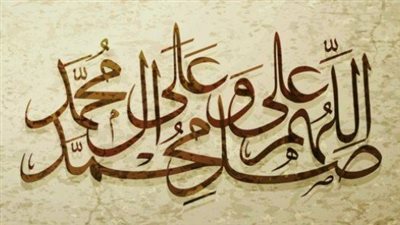 اللّٰهُمَّ صَلِّ عَلَى مُحَمَّد وَ عَلَى آلِ مُحَمَّد